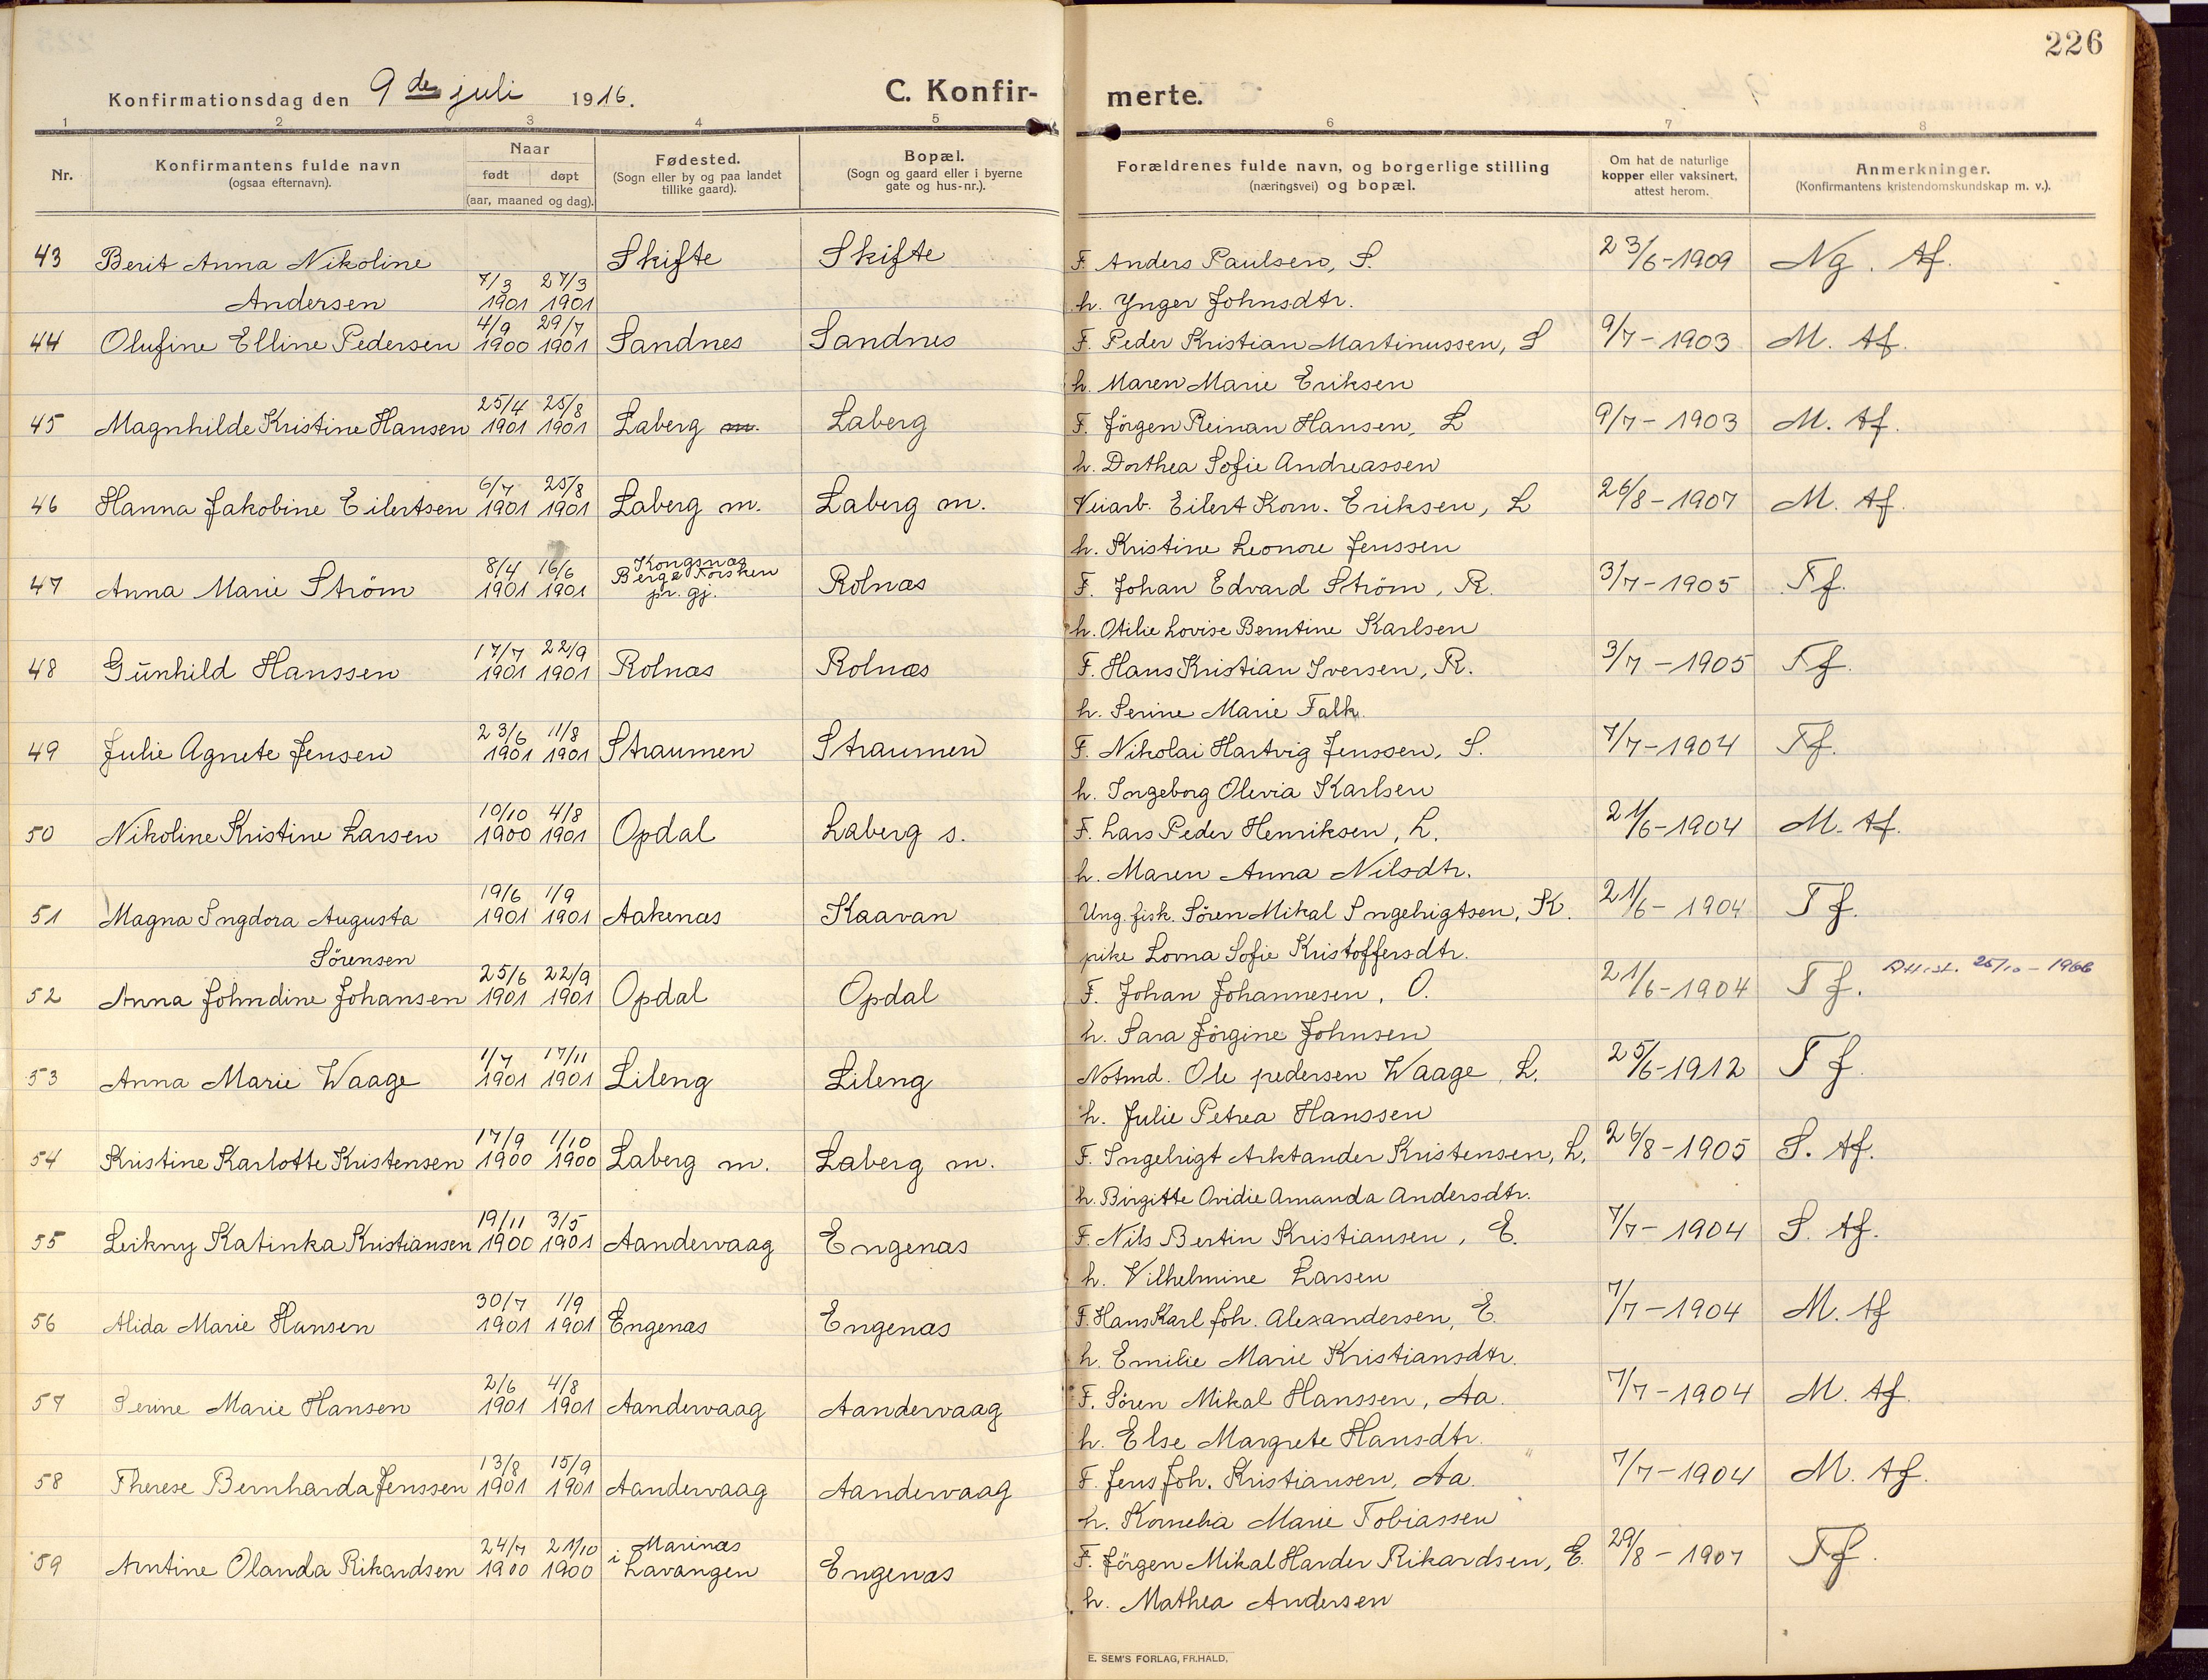 226
Konfirmationsdag den 9de juli 1916. C. Konfir- merte.
1 2 3 4 5 6 7 8
Nr. Konfirmantens fulde navn (ogsaa efternavn). Naar født døpt (aar, maaned og dag). Fødested. (Sogn eller by og paa landet tillike gaard). Bopæl. (Sogn og gaard eller i byerne gate og hus-nr.). Forældrenes fulde navn, og borgerlige stilling (næringsvei) og bopæl. Om hat de naturlige kopper eller vaksinert, attest herom. Anmerkninger. (Konfirmantens kristendomskundskap m. v.).
43 Berit Anna Nikoline Skifte Skifte F. Anders Paulsen, S. 23/6-1909 Ng. Af.
Andersen 7/3 1901 27/3 1901 h. Ynger Johnsdtr.
44 Olufine Elline Pedersen 4/9 1900 29/7 1901 Sandnes Sandnes F. Peder Kristian Martinussen, S 9/7-1903 M. Af.
h. Maren Marie Eriksen
45 Magnhilde Kristine Hansen 25/4 1901 25/8 1901 Laberg m. Laberg F. Jörgen Reinan Hansen, L 9/7-1903 M. Af.
h. Dorthea Sofie Andreassen
46 Hanna Jakobine Eilertsen 6/7 1901 25/8 1901 Laberg m. Laberg m. Veiarb. Eilert Korn. Eriksen, L 26/8-1907 M. Af.
h. Kristine Leonore Jenssen
47 Anna Marie Ström 8/4 1901 16/6 1901 Kongsnæs Berg Torsken pr. gj. Rolnæs F. Johan Edvard Ström, R. 3/7-1905 Tf.
h. Otilie Lovise Berntine Karlsen
48 Gunhild Hanssen 17/7 1901 22/9 1901 Rolnæs Rolnæs F. Hans Kristian Iversen, R. 3/7-1905 Tf.
h. Serine Marie Falk.
49 Julie Agnete Jensen 23/6 1901 11/8 1901 Straumen Straumen F. Nikolai Hartvig Jenssen, S. 7/7-1904 Tf.
h. Ingeborg Olevia Karlsen
50 Nikoline Kristine Larsen 10/10 1900 4/8 1901 Opdal Laberg s. F. Lars Peder Henriksen, L. 21/6-1904 M. Af.
h. Maren Anna Nilsdtr.
51 Magna Ingdora Augusta 19/6 1901 1/9 1901 Aakenæs Kaavan Ung. fisk. Sören Mikal Ingebrigtsen, K. 21/6-1904 Tf.
Sörensen pike Lorna Sofie Kristoffersdtr.
52 Anna Johndine Johansen 25/6 1901 22/9 1901 Opdal Opdal F. Johan Johannesen, O. 21/6-1904 Tf. Attest. 25/10-1966
h. Sara Jörgine Johnsen
53 Anna Marie Waage 1/7 1901 17/11 1901 Lileng Lileng Notmd. Ole pedersen Waage, L. 25/6-1912 Tf.
h. Julie Petrea Hanssen
54 Kristine Karlotte Kristensen 17/9 1900 1/10 1900 Laberg m. Laberg m. F. Ingebrigt Arktander Kristensen, L. 26/8-1905 S. Af.
h. Birgitte Ovidie Amanda Andersdtr.
55 Leikny Katinka Kristiansen 19/11 1900 3/5 1901 Aandervaag Engenæs F. Nils Bertin Kristiansen, E. 7/7-1904 S. Af.
h. Vilhelmine Larsen
56 Alida Marie Hansen 30/7 1901 1/9 1901 Engenæs Engenæs F. Hans Karl Joh. Alexandersen, E. 7/7-1904 M. Af
h. Emilie Marie Kristiansdtr.
57 Serine Marie Hansen 2/6 1901 4/8 1901 Aandervaag Aandervaag F. Sören Mikal Hanssen, Aa. 7/7-1904 M. Af.
h. Else Margrete Hansdtr.
58 Therese Bernharda Jenssen 13/8 1901 15/9 1901 Aandervaag Aandervaag F. Jens Joh. Kristiansen, Aa. 7/7-1904 M. Af.
h. Kornelia Marie Tobiassen
59 Arntine Olanda Rikardsen 24/7 1900 21/10 1900 Marinæs i Lavangen Engenæs F. Jörgen Mikal Harder Rikardsen, E. 29/8-1907 Tf.
h. Mathea Andersen
E. SEM'S FORLAG, FR.HALD.